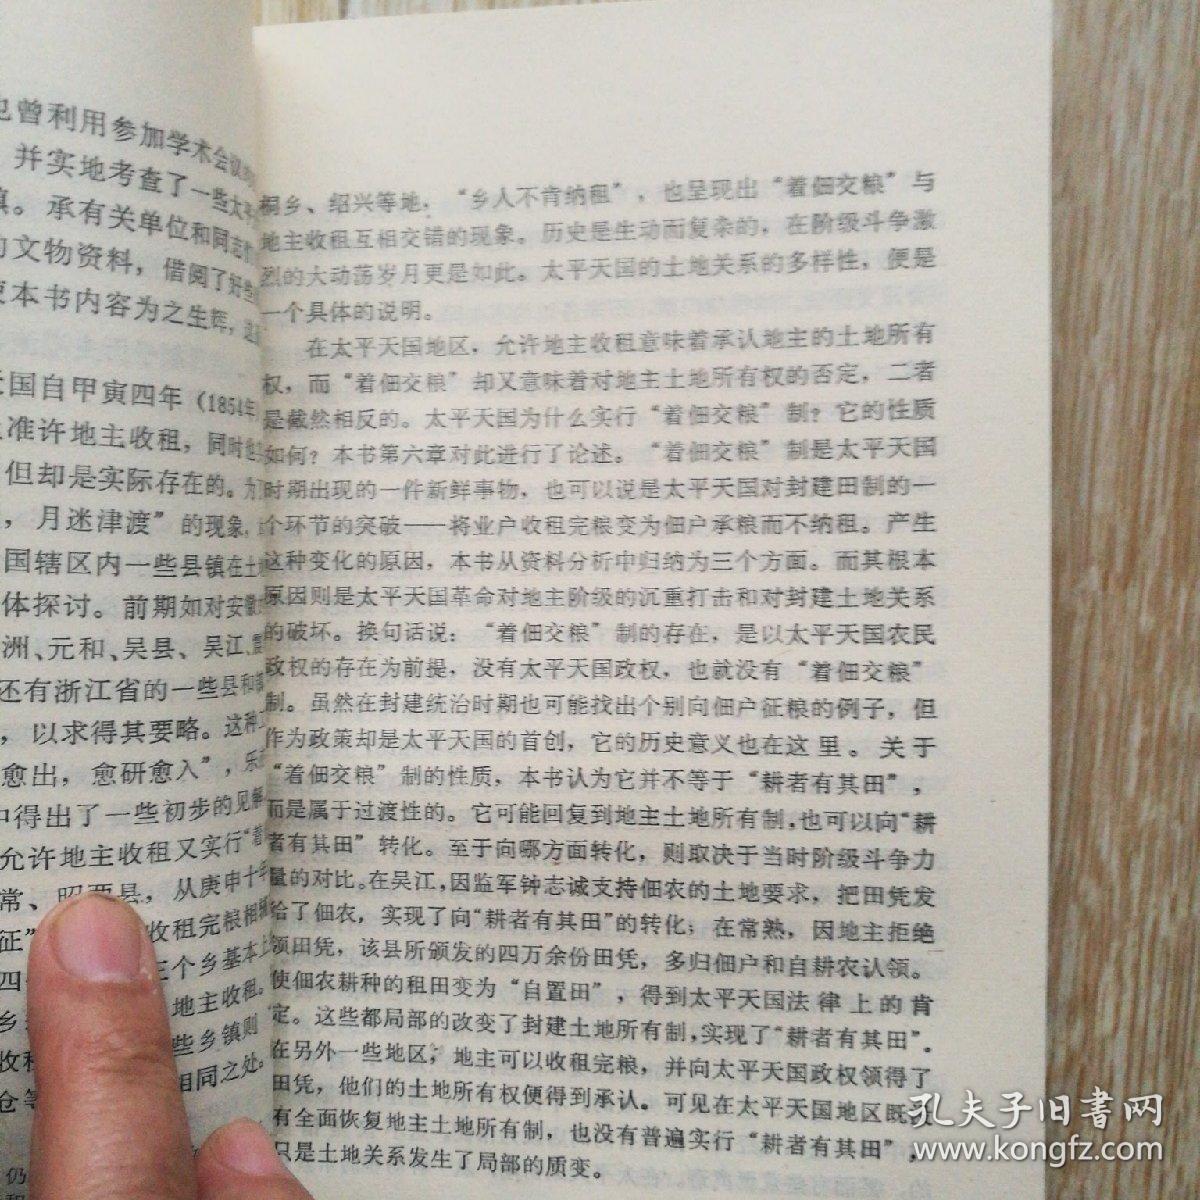 也曾利用参加学术会议
并实地考查了一些太平
承有关单位和同志们
文物资料，借阅了好些
本书内容为之生辉，
国自甲寅四年（1854年）
准许地主收租，同时
但却是实际存在的。为
，月迷津渡”的现象，
国辖区内一些县镇在土
体探讨。前期如对安徽
洲、元和、吴县、吴江、震
还有浙江省的一些县和
，以求得其要略。这种
愈出，愈研愈入”，乐
中得出了一些初步的见解
允许地主收租又实行“着
常、昭两县，从庚申十年
征” 收租完粮相
四 三个乡基本上
乡 地主收租。
收租 些乡镇则
仓等 相同之处。
仍
桐乡、绍兴等地，“乡人不肯纳租”，也呈现出“着佃交粮”与
地主收租互相交错的现象。历史是生动而复杂的，在阶级斗争激
烈的大动荡岁月更是如此。太平天国的土地关系的多样性，便是
一个具体的说明。
在太平天国地区，允许地主收租意味着承认地主的土地所有
权，而“着佃交粮”却又意味着对地主土地所有权的否定，二者
是截然相反的。太平天国为什么实行“着佃交粮”制？它的性质
如何？本书第六章对此进行了论述。“着佃交粮”制是太平天国
时期出现的一件新鲜事物，也可以说是太平天国对封建田制的一
个环节的突破——将业户收租完粮变为佃户承粮而不纳租。产生
这种变化的原因，本书从资料分析中归纳为三个方面。而其根本
原因则是太平天国革命对地主阶级的沉重打击和对封建土地关系
的破坏。换句话说：“着佃交粮”制的存在，是以太平天国农民
政权的存在为前提，没有太平天国政权，也就没有“着佃交粮”
制。虽然在封建统治时期也可能找出个别向佃户征粮的例子，但
作为政策却是太平天国的首创，它的历史意义也在这里。关于
“着佃交粮”制的性质，本书认为它并不等于“耕者有其田”，
而是属于过渡性的。它可能回复到地主土地所有制，也可以向“耕
者有其田”转化。至于向哪方面转化，则取决于当时阶级斗争力
量的对比。在吴江，因监军钟志诚支持佃农的土地要求，把田凭发
给了佃农，实现了向“耕者有其田”的转化；在常熟，因地主拒绝
领田凭，该县所颁发的四万余份田凭，多归佃户和自耕农认领。
使佃农耕种的租田变为“自置田”，得到太平天国法律上的肯
定。这些都局部的改变了封建土地所有制，实现了“耕者有其田”．
在另外一些地区，地主可以收租完粮，并向太平天国政权领得了
田凭，他们的土地所有权便得到承认。可见在太平天国地区既没
有全面恢复地主土地所有制，也没有普遍实行“耕者有其田”，
只是土地关系发生了局部的质变。
孔夫子旧书网
www.kongfz.com